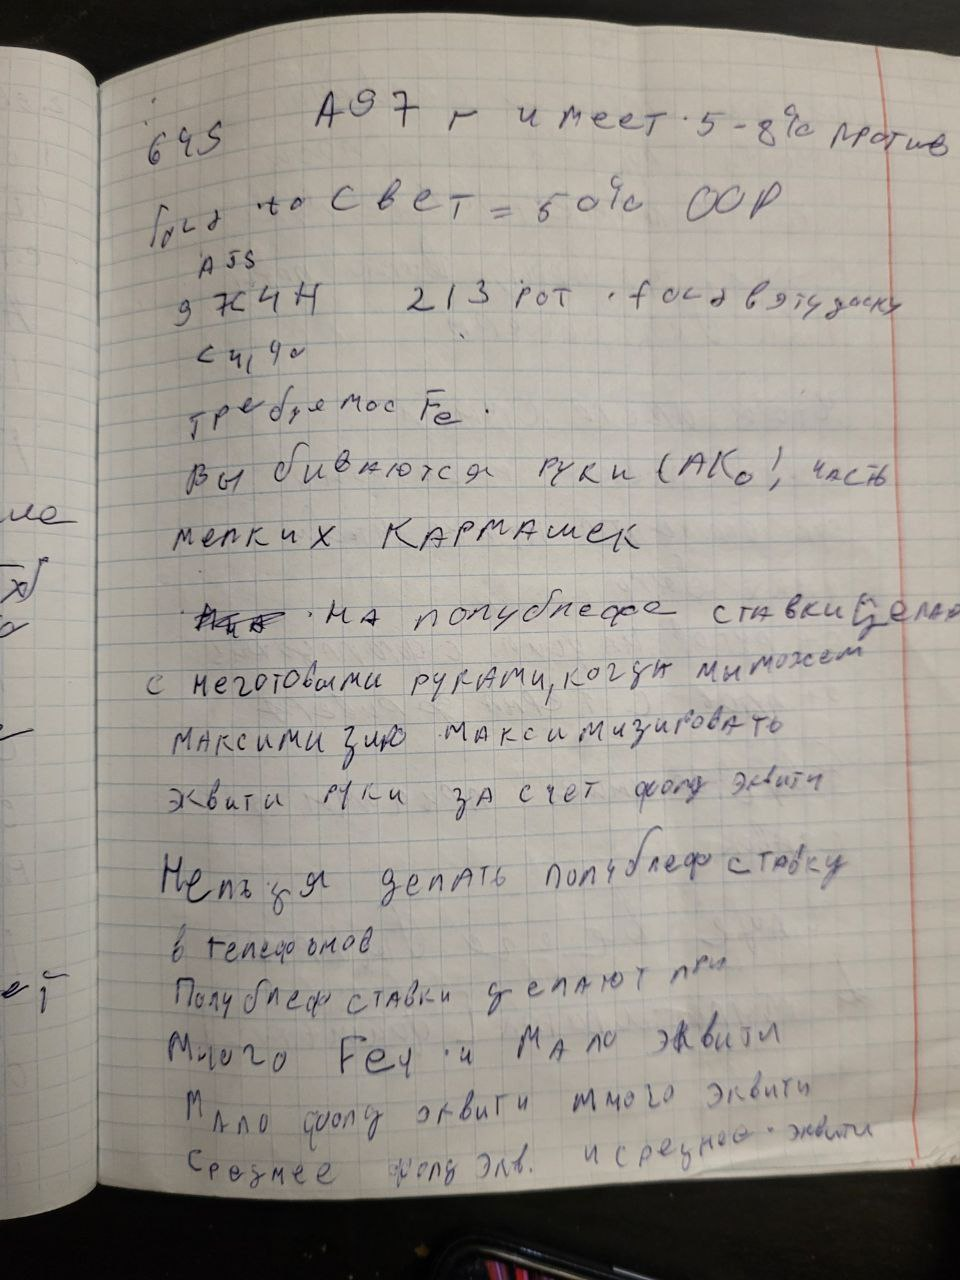 645 A97r имеет 5-8% против
СВЕТ = 50% OOP
AJS
9X4H 213 POT fold в эту доску
требуемос Fe.
Выбиваются руки (AKo), часть
мелких КАРМАШЕК
НА полублефе ставки делаю
с неготовыми руками, когда мы можем
максимизиро максимизировать
эквити руки за счет фолд эквити
Нельзя делать полублеф ставку
в телефонов
Полублеф ставки делают при
Много Feq и Мало эквити
Мало фолд эквити много эквити
Среднее фолд экв. и среднее эквити
ла